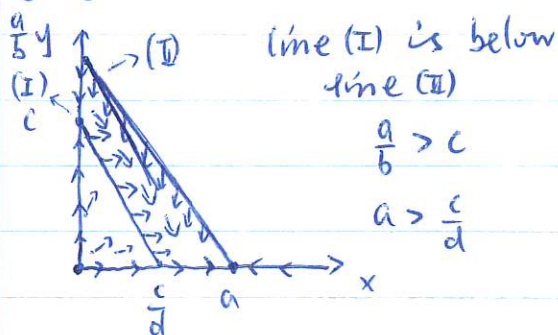 a/b y
(I)
c
(II)
line (I) is below
line (II)
a/b > c
a > c/d
c/d
a
x